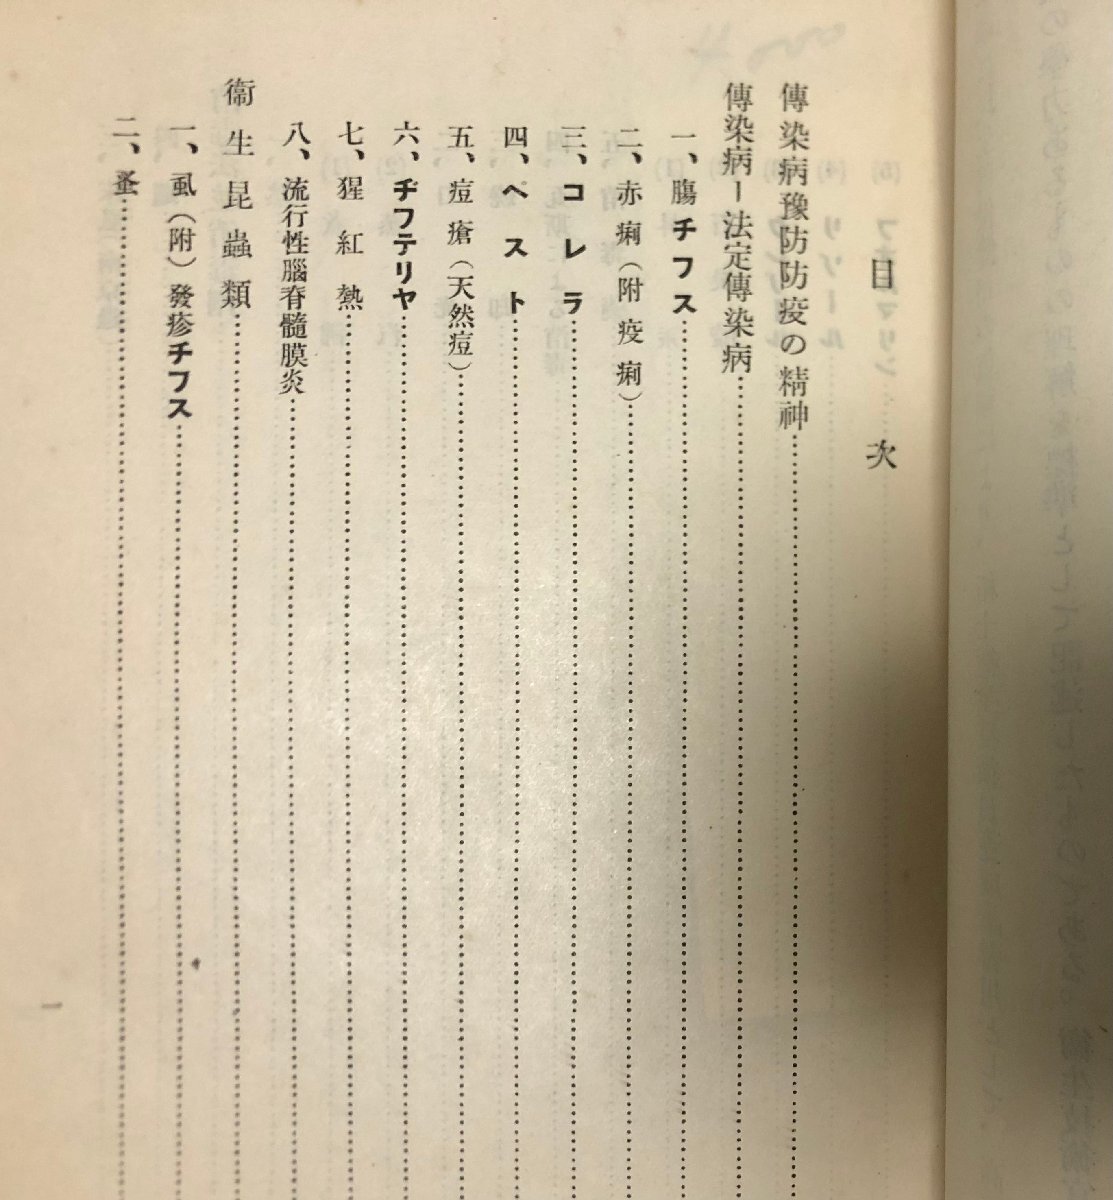 目次
傳染病豫防防疫の精神
傳染病ー法定傳染病
一、腸チフス
二、赤痢（附疫痢）
三、コレラ
四、ペスト
五、痘瘡（天然痘）
六、ヂフテリヤ
七、猩紅熱
八、流行性腦脊髓膜炎
衞生昆蟲類
一、虱（附）發疹チフス
二、蚤
一